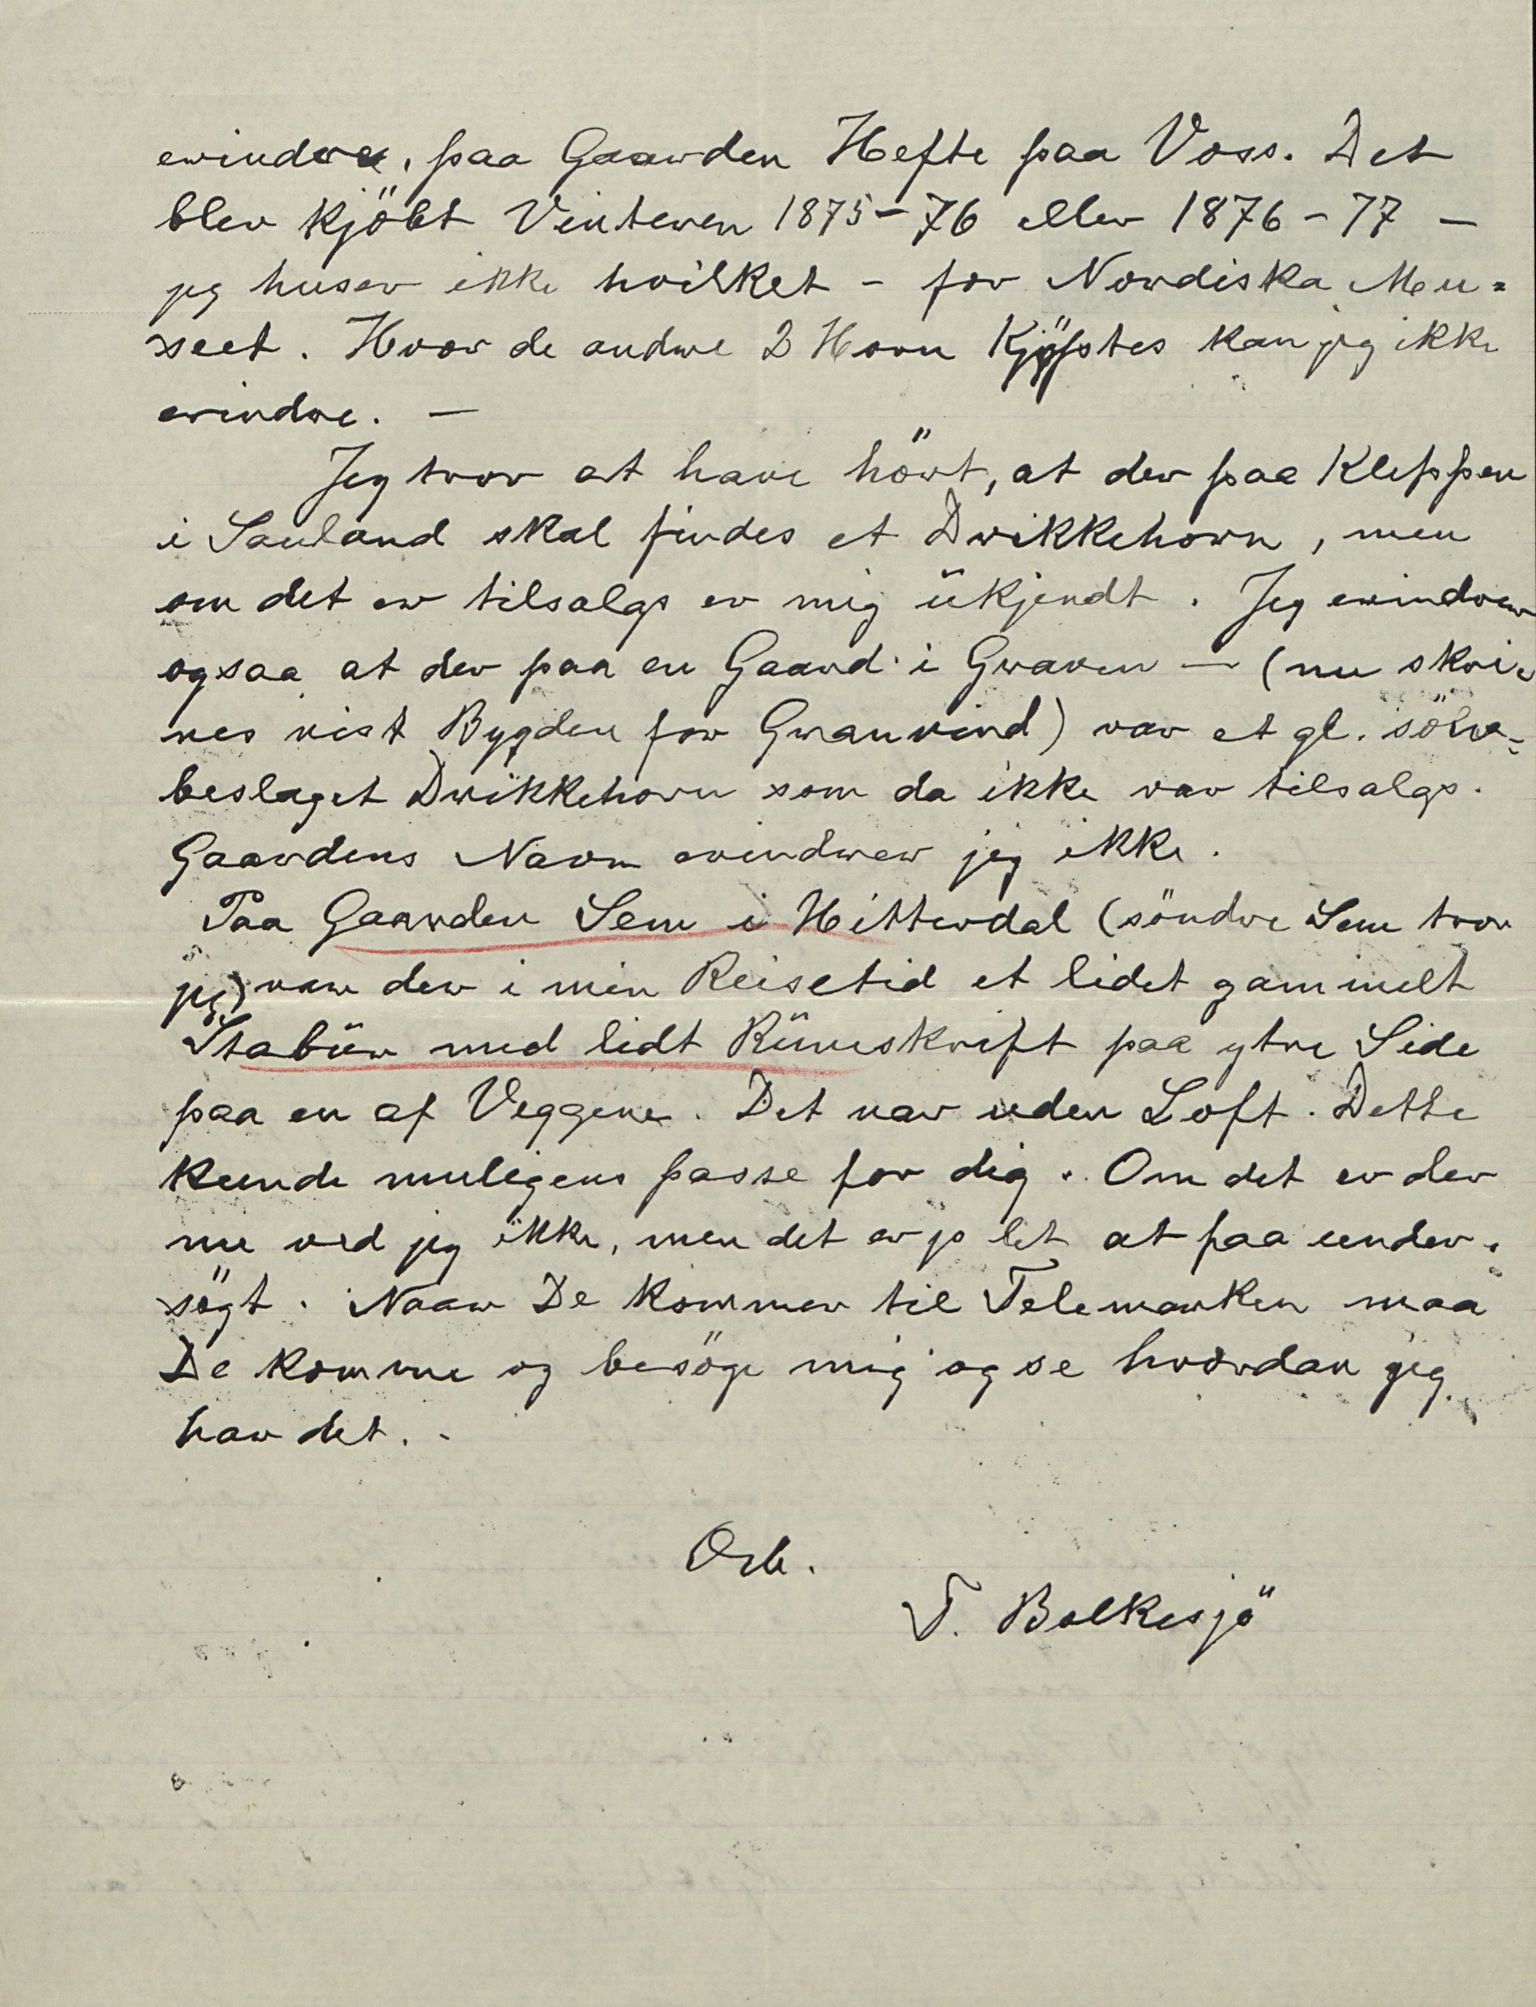 erindre, paa Gaarden Hefte paa Voss. Det
blev kjöbt Vinteren 1875-76 eller 1876-77 -
jeg huser ikke hvilket - for Nordiska Mu=
seet. Hvor de andre 2 Horn Kjöptes kan jeg ikke
erindre. -
Jeg tror at have hört, at der paa Kleppen
i Sauland skal findes et Drikkehorn, men
om det er tilsalgs er mig ükjendt. Jeg erindrer
ogsaa at der paa en Gaard i Graven - (nu skri
ves vist Bygden for Granvind) var et gl. sölv=
beslaget Drikkehorn som da ikke var tilsalgs.
Gaardens Navn erindrer jeg ikke.
Paa Gaarden Sem i Hitterdal (söndre Sem tror
jeg) var der i min Reisetid et lidet gammelt
Stabür med lidt Rüneskrift paa ytre Side
paa en af Veggene. Det var uden Loft. Dette
kunde muligens passe for dig. Om det er der
nu ved jeg ikke, men det er jo let at faa under-
sögt. Naar De kommer til Telemarken maa
De komme og besöge mig og se hvordan jeg
har det. -
Örb.
T. Bolkesjö